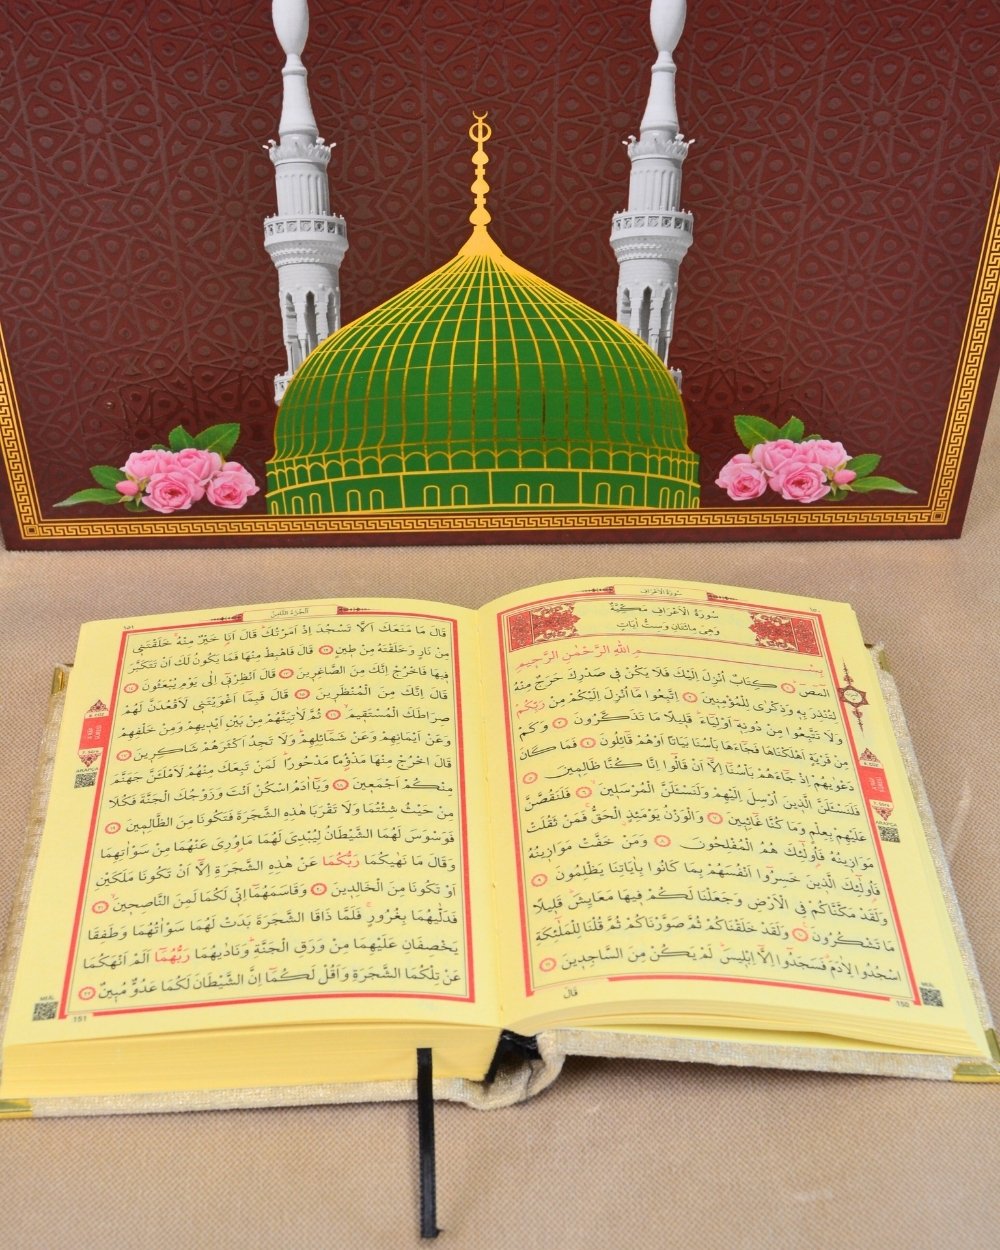 سُورَةُ الْاَعْرَافِ
١٥٠
سُورَةُ الْاَعْرَافِ مَكِّيَّةٌ
وَهِيَ مِائَتَانِ وَسِتُّ اٰيَاتٍ
بِسْمِ اللّٰهِ الرَّحْمٰنِ الرَّحٖيمِ
الٓمٓصٓ ١ كِتَابٌ اُنْزِلَ اِلَيْكَ فَلَا يَكُنْ فٖي صَدْرِكَ حَرَجٌ مِنْهُ
لِتُنْذِرَ بِهٖ وَذِكْرٰى لِلْمُؤْمِنٖينَ ٢ اِتَّبِعُوا مَٓا اُنْزِلَ اِلَيْكُمْ مِنْ رَبِّكُمْ
وَلَا تَتَّبِعُوا مِنْ دُونِهٖٓ اَوْلِيَٓاءَ قَلٖيلًا مَا تَذَكَّرُونَ ٣ وَكَمْ
مِنْ قَرْيَةٍ اَهْلَكْنَاهَا فَجَٓاءَهَا بَأْسُنَا بَيَاتًا اَوْ هُمْ قَٓائِلُونَ ٤ فَمَا كَانَ
دَعْوٰيهُمْ اِذْ جَٓاءَهُمْ بَأْسُنَٓا اِلَّٓا اَنْ قَالُٓوا اِنَّا كُنَّا ظَالِمٖينَ ٥
فَلَنَسْـَٔلَنَّ الَّذٖينَ اُرْسِلَ اِلَيْهِمْ وَلَنَسْـَٔلَنَّ الْمُرْسَلٖينَ ٦ فَلَنَقُصَّنَّ
عَلَيْهِمْ بِعِلْمٍ وَمَا كُنَّا غَٓائِبٖينَ ٧ وَالْوَزْنُ يَوْمَئِذٍ الْحَقُّ فَمَنْ ثَقُلَتْ
مَوَازٖينُهُ فَاُولٰٓئِكَ هُمُ الْمُفْلِحُونَ ٨ وَمَنْ خَفَّتْ مَوَازٖينُهُ
فَاُولٰٓئِكَ الَّذٖينَ خَسِرُٓوا اَنْفُسَهُمْ بِمَا كَانُوا بِاٰيَاتِنَا يَظْلِمُونَ ٩
وَلَقَدْ مَكَّنَّاكُمْ فِي الْاَرْضِ وَجَعَلْنَا لَكُمْ فٖيهَا مَعَايِشَ قَلٖيلًا
مَا تَشْكُرُونَ ١٠ وَلَقَدْ خَلَقْنَاكُمْ ثُمَّ صَوَّرْنَاكُمْ ثُمَّ قُلْنَا لِلْمَلٰٓئِكَةِ
اسْجُدُوا لِاٰدَمَ فَسَجَدُٓوا اِلَّٓا اِبْلٖيسَ لَمْ يَكُنْ مِنَ السَّاجِدٖينَ ١١
قَالَ
150
MEAL
اَلْجُزْءُ الثَّامِنُ
١٥١
قَالَ مَا مَنَعَكَ اَلَّا تَسْجُدَ اِذْ اَمَرْتُكَ قَالَ اَنَا۬ خَيْرٌ مِنْهُ خَلَقْتَنٖي
مِنْ نَارٍ وَخَلَقْتَهُ مِنْ طٖينٍ ١٢ قَالَ فَاهْبِطْ مِنْهَا فَمَا يَكُونُ لَكَ اَنْ تَتَكَبَّرَ
فٖيهَا فَاخْرُجْ اِنَّكَ مِنَ الصَّاغِرٖينَ ١٣ قَالَ اَنْظِرْنٖٓي اِلٰى يَوْمِ يُبْعَثُونَ ١٤
قَالَ اِنَّكَ مِنَ الْمُنْظَرٖينَ ١٥ قَالَ فَبِمَٓا اَغْوَيْتَنٖي لَاَقْعُدَنَّ لَهُمْ
صِرَاطَكَ الْمُسْتَقٖيمَ ١٦ ثُمَّ لَاٰتِيَنَّهُمْ مِنْ بَيْنِ اَيْدٖيهِمْ وَمِنْ خَلْفِهِمْ
وَعَنْ اَيْمَانِهِمْ وَعَنْ شَمَٓائِلِهِمْ وَلَا تَجِدُ اَكْثَرَهُمْ شَاكِرٖينَ ١٧
قَالَ اخْرُجْ مِنْهَا مَذْؤُ۫مًا مَدْحُورًا لَمَنْ تَبِعَكَ مِنْهُمْ لَاَمْلَـَٔنَّ جَهَنَّمَ
مِنْكُمْ اَجْمَعٖينَ ١٨ وَيَٓا اٰدَمُ اسْكُنْ اَنْتَ وَزَوْجُكَ الْجَنَّةَ فَكُلَا
مِنْ حَيْثُ شِئْتُمَا وَلَا تَقْرَبَا هٰذِهِ الشَّجَرَةَ فَتَكُونَا مِنَ الظَّالِمٖينَ ١٩
فَوَسْوَسَ لَهُمَا الشَّيْطَانُ لِيُبْدِيَ لَهُمَا مَا وُ۫رِيَ عَنْهُمَا مِنْ سَوْاٰتِهِمَا
وَقَالَ مَا نَهٰيكُمَا رَبُّكُمَا عَنْ هٰذِهِ الشَّجَرَةِ اِلَّٓا اَنْ تَكُونَا مَلَكَيْنِ
اَوْ تَكُونَا مِنَ الْخَالِدٖينَ ٢٠ وَقَاسَمَهُمَٓا اِنّٖي لَكُمَا لَمِنَ النَّاصِحٖينَ ٢١
فَدَلّٰيهُمَا بِغُرُورٍ فَلَمَّا ذَاقَا الشَّجَرَةَ بَدَتْ لَهُمَا سَوْاٰتُهُمَا وَطَفِقَا
يَخْصِفَانِ عَلَيْهِمَا مِنْ وَرَقِ الْجَنَّةِ وَنَادٰيهُمَا رَبُّهُمَٓا اَلَمْ اَنْهَكُمَا
عَنْ تِلْكُمَا الشَّجَرَةِ وَاَقُلْ لَكُمَٓا اِنَّ الشَّيْطَانَ لَكُمَا عَدُوٌّ مُبٖينٌ ٢٢
151
MEAL